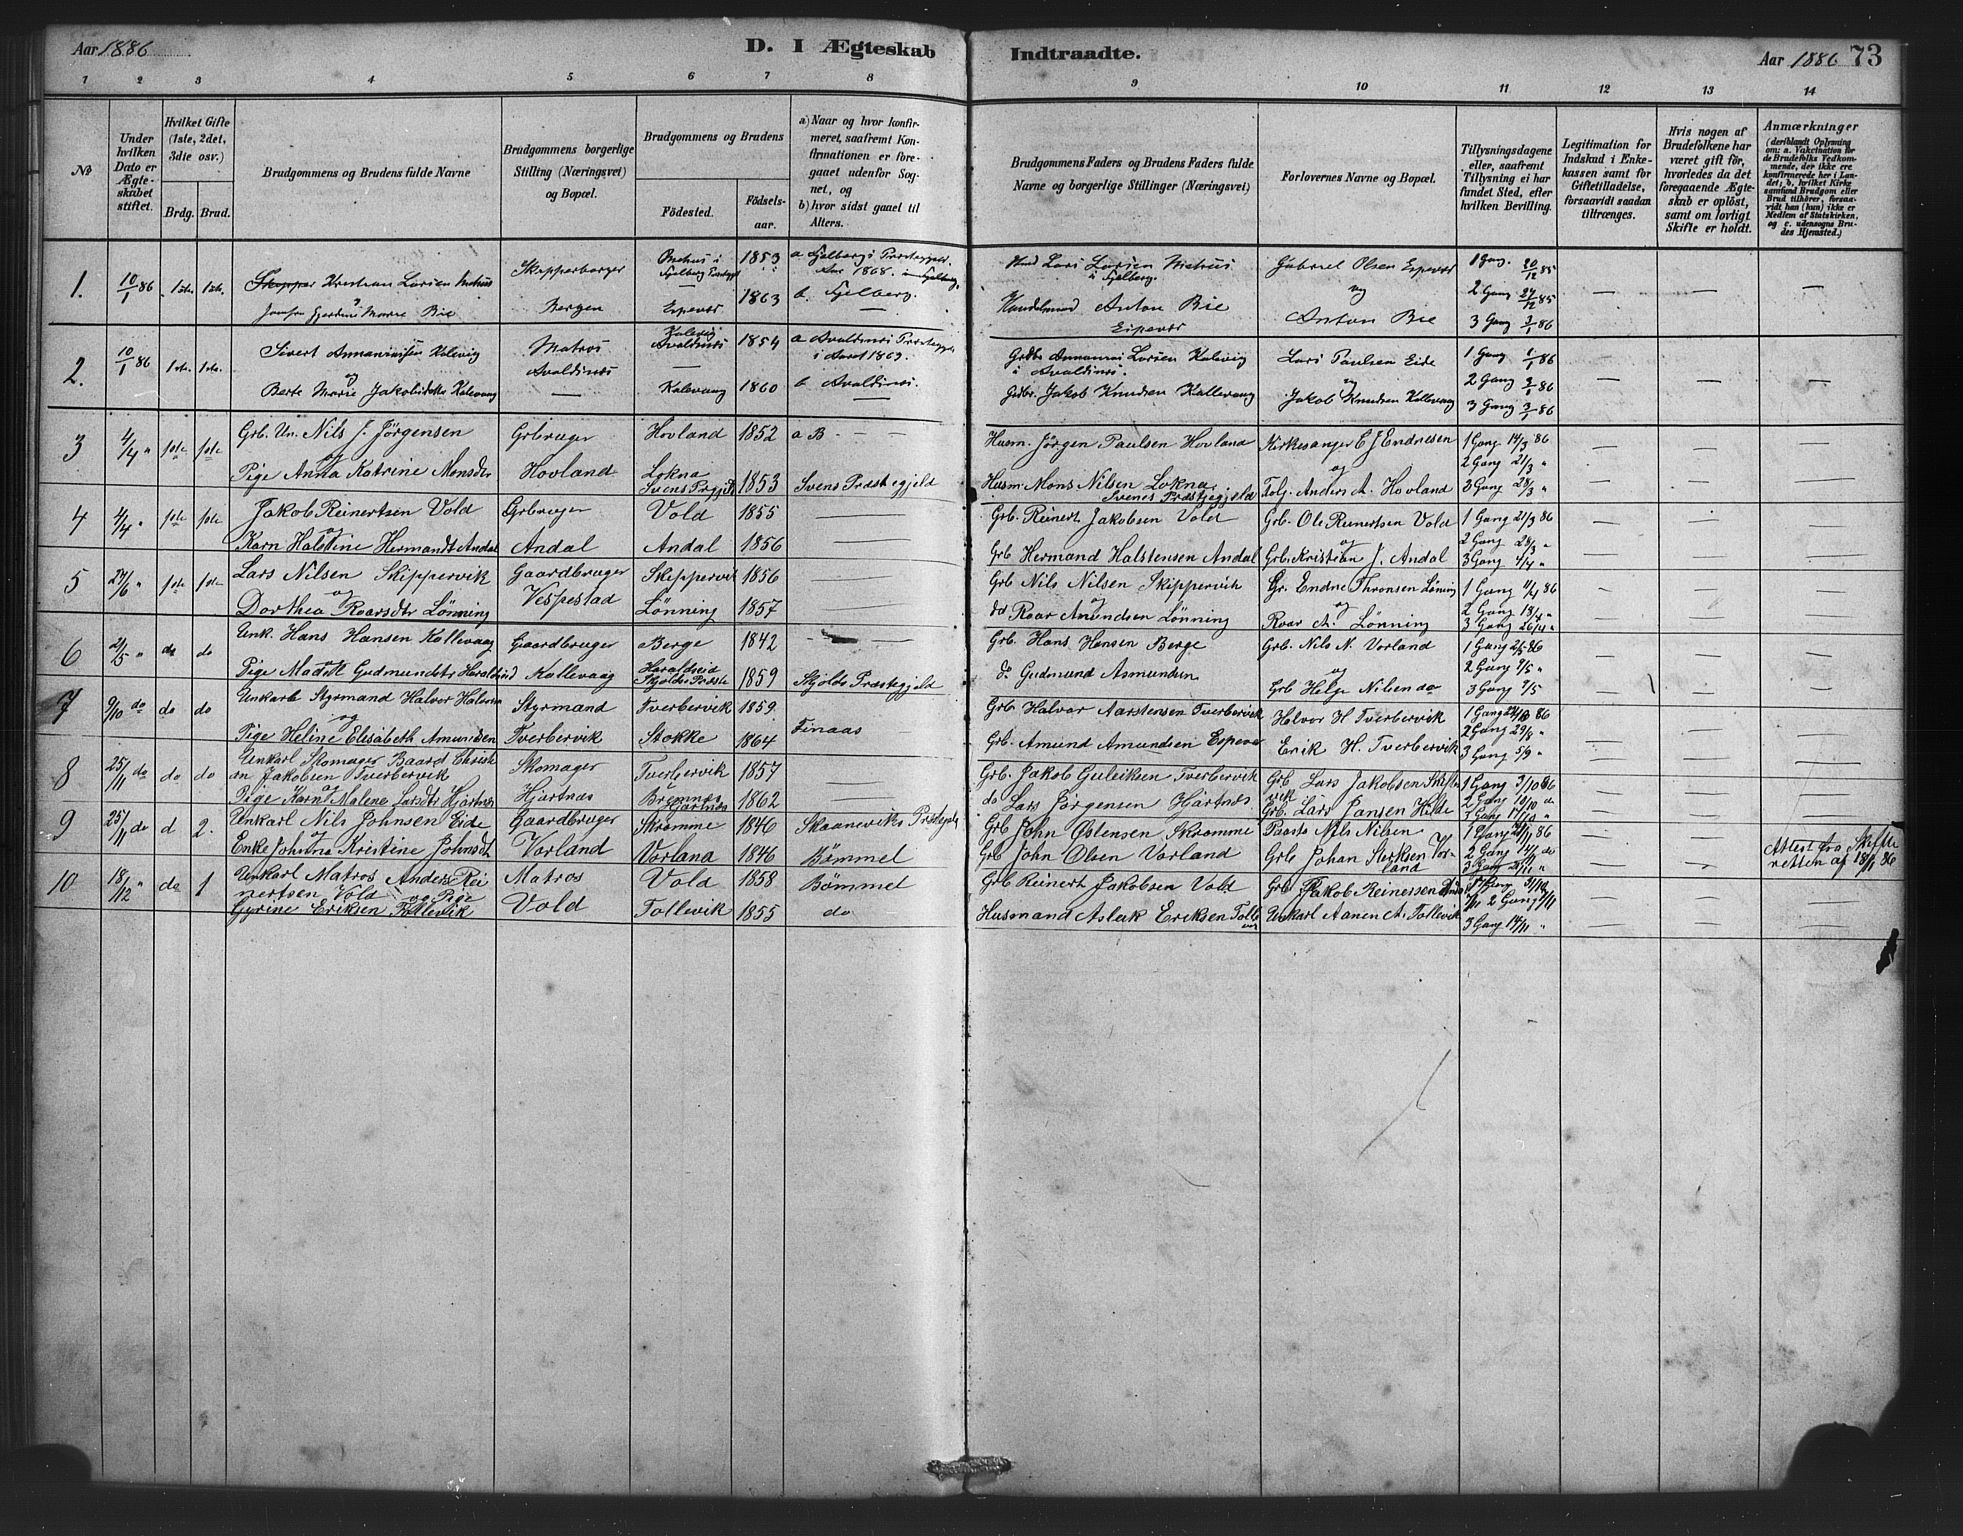 Aar 1886
D. I Ægteskab Indtraadte.
Aar 1886 73
1 2 3 4 5 6 7 8 9. 10 11 12 13 14
№
Under hvilken Dato er Ægteskabet stiftet.
Hvilket Gifte (1ste, 2det, 3die osv.)
Brdg. Brud.
Brudgommens og Brudens fulde Navne
Brudgommens borgerlige Stilling (Næringsvei) og Bopæl.
Brudgommens og Brudens
Fødested.
Fødselsaar.
a) Naar og hvor konfirmeret, saafremt Konfirmationen er foregaaet udenfor Sognet, og
b) hvor sidst gaaet til Alters.
Brudgommens Faders og Brudens Faders fulde Navne og borgerlige Stillinger (Næringsvei)
Forlovernes Navne og Bopæl.
Tillysningsdagene eller, saafremt Tillysning ei har fundet Sted, efter hvilken Bevilling.
Legitimation for Indskud i Enkekassen samt for Giftetilladelse, forsaavidt saadan tiltrænges.
Hvis nogen af Brudefolkene har været gift før, hvorledes da det foregaaende Ægteskab er opløst, samt om lovligt Skifte er holdt.
Anmærkninger
(deriblandt Oplysning om: a. Vakcination for de Brudefolks Vedkommende, der ikke ere konfirmerede her i Landet; b. hvilket Kirkesamfund Brudgom eller Brud tilhører, forsaavidt han (hun) ikke er Medlem af Statskirken, og c. udensogns Brudes Hjemsted.)
1. 10/1 86 1ste. 1ste. Skipper Kristian Larsen Mehus Skipperborger Mehus i Fjelberg 1853 a Fjelbergs Præstegjeld Aar 1868. Lars Larsen Mehus i Fjelberg. Gabriel Olsen Espevær 1 Gang 20/12 85 — — —
og
Jomfru Marie Bie Bergen Espevær 1863 b. Fjelberg. Handelsmand Anton Bie Espevær Anton Bie 2 Gang 27/12 85
3 Gang 3/1 86
2. 10/1 86 1ste. 1ste. Sivert Kalevig Matros Kalevig Avaldsnes 1854 a Avaldsnes i Aaret 1869. Larsen Kalevig i Avaldsnes. Lars Paulsen Eide 1 Gang 1/1 86 — — —
og
Berte Marie Kalevaag Avaldsnes — Kalevaag 1860 b Avaldsnes. Jakob Knudsen Kallevaag Jakob Knudsen Kallevaag 2 Gang 2/1 86
3 Gang 3/1 86
3 4/4 " 1ste 1ste Grb. Un. Nils J. Jørgensen Grbruger Hovland 1852 a B — — Husm. Jørgen Paulsen Hovland Kirkesanger E J Endresen 1 Gang 14/3 86 — — —
og
Pige Anna Katrine Monsdtr Hovland Lokna Svens Prgjld 1853 Svens Præstegjeld Husm. Mons Nilsen Lokna Svenes Præstegjeld Anders A. Hovland 2 Gang 21/3 "
3 Gang 28/3 "
4 4/4 " 1ste 1ste Jakob Reinertsen Vold Grbruger Vold 1855 — Grb. Reinert Jakobsen Vold Grb. Ole Reinertsen Vold 1 Gang 21/3 86 — — —
og
Karn Halstine Hermandt Andal Andal Andal 1856 — Grb Hermand Halstensen Andal Grb. Kristian J. Andal 2 Gang 28/3 "
3 Gang 4/4 "
5 24/6 " 1ste 1ste Lars Nilsen Skippervik Gaardbruger Skippervik 1856 Grb Nils Nilsen Skippervik Gr. Endre Thronsen Løning 1 Gang 11/4 86 — — —
og
Dorthea Roarsdtr Lønning Vespestad Lønning 1857 do Roar Amundsen Lønning Roar A. Lønning 2 Gang 18/4 "
3 Gang 26/4 "
6 2/5 " do do Unk. Hans Hansen Kallevaag Gaardbruger Berge 1842 — Grb. Hans Hansen Berge Grb. Nils N. Vorland 1 Gang 2/5 86 — — —
Pige Gudmundsdtr Kallevaag Haraldseid Skjolds Præste 1859 Skjolds Præstegjeld do Gudmund Asmundsen og Grb Helge Nilsen do 2 Gang
3 Gang
7 9/10 do do do Unkarl Styrmand Halvor Halvorsen Styrmand Tverbervik 1859 Grb. Halvor Aarstensen Tverbervik Halvor H Tverbervik 1 Gang 86 — — —
og
Pige Heline Elisabeth Amundsen Tverbervik Stokke 1864 Finaas Grb. Amund Amundsen Espevær Erik H. Tverbervik 2 Gang 29/8 "
3 Gang 5/9 "
8 25/11 do do do Unkarl Skomager Baard Christian Jakobsen Tverbervik Skomager Tverbervik 1857 — Grb. Jakob Guleiksen Tverbervik Grb Lars Jakobsen 1 Gang 3/10 86 — — —
og
Pige Karn Malene Larsdtr Hjartnes Hjartnes Hjartnes 1862 — do Lars Jørgensen Hjartnes Grb. Lars Jansen Hilde 2 Gang 10/10 do
3 Gang 17/10 "
9 25/11 do d 2. Unkarl Nils Johnsen Eide Gaardbruger Skromme 1846 Skaaneviks Præstegjeld Grb John Østensen Skromme Nils Nilsen 1 Gang 86 — Attest fra Skifteretten af 18/11 86
og
Enke Johnna Kristine Johnsdt Vorland Vorland 1846 Bømmel Grb John Olsen Vorland Grb Johan Sterksen Vorland 2 Gang do
3 Gang
10 18/12 " do 1 Unkarl Matros Anders Reinertsen Vold og Pige Matros Vold 1858 Bømmel Grb Reinert Jakobsen Vold Grb Jakob Reinersen 1 Gang 31/10 — — —
Gyrine Eriksen Tollevik Vold Tollevik 1855 do Husmand Aslak Eriksen Tollevik Unkarl Aanen A. Tollevik 2 Gang 7/11
3 Gang 14/11 "